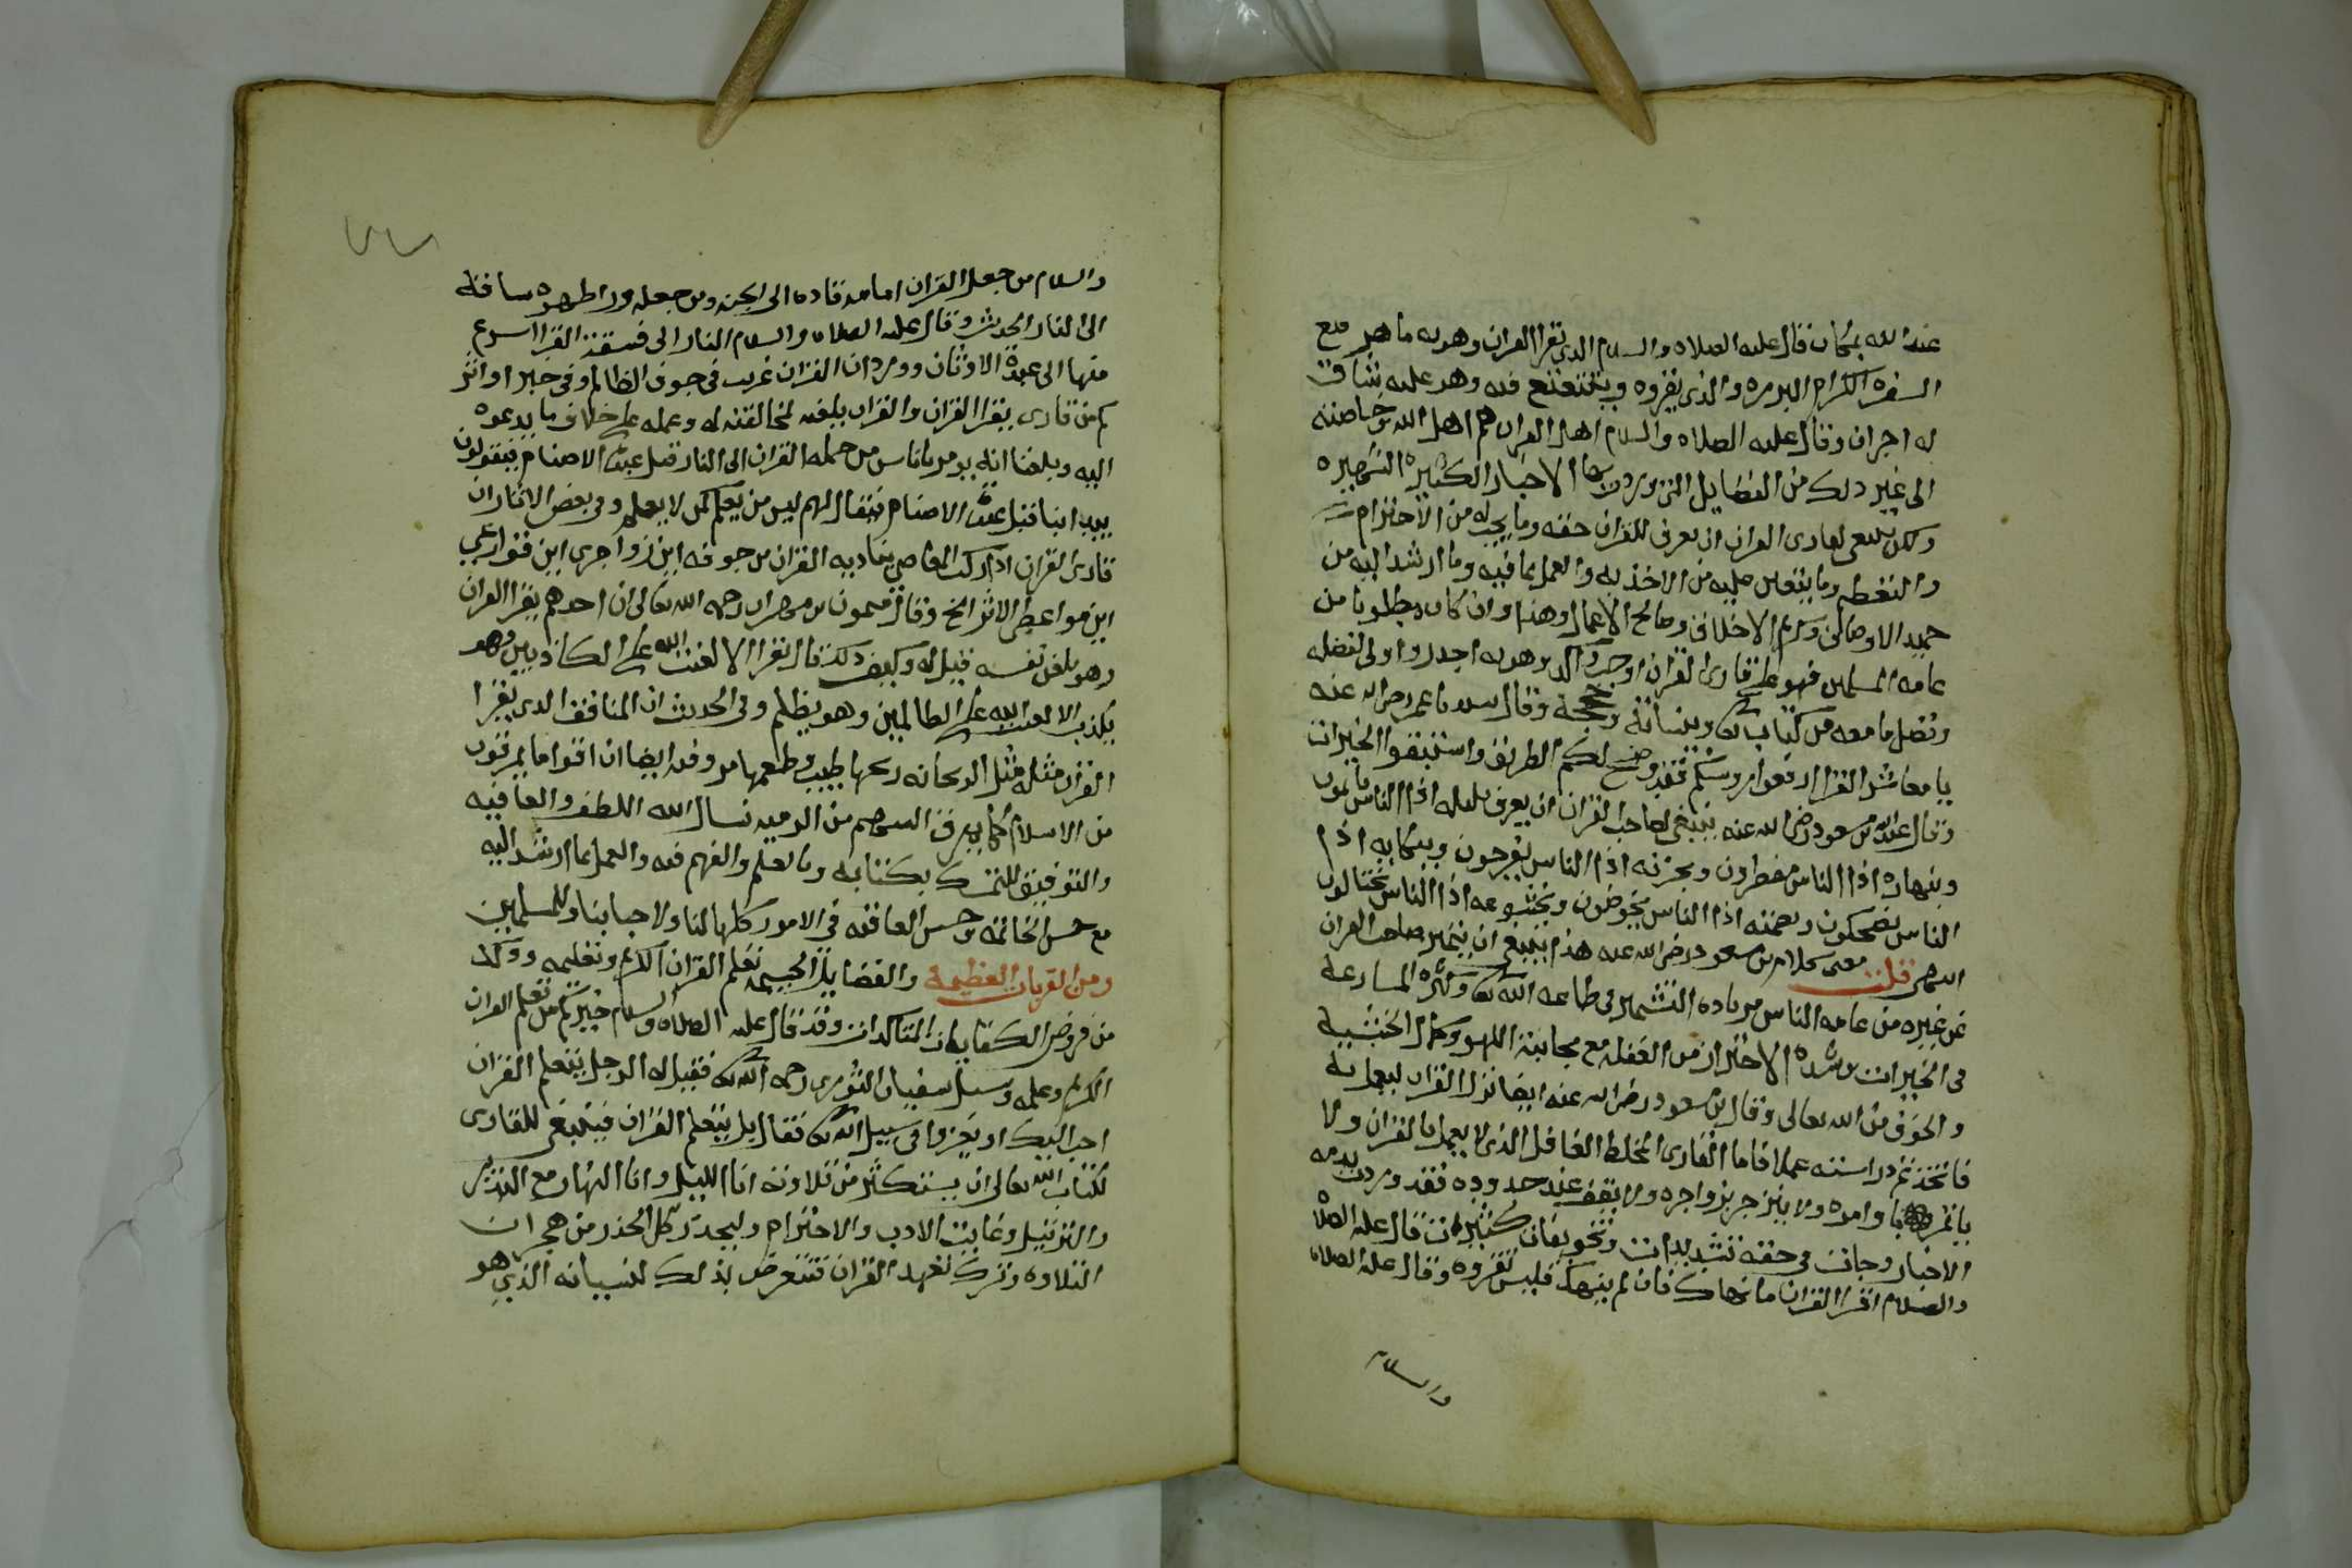 عند الله بمكان قال عليه الصلاه والسلام الذي يقرا القران وهو به ماهر مع
السفره الكرام البرره والذي يقروه ويتتعتع فيه وهو عليه شاق
له اجران وقال عليه الصلاه والسلام اهل القران هم اهل الله وخاصته
الى غير ذلك من الفضايل التي وردت بها الاخبار الكثيره الشهيره
ولكن ينبغي لقاري القران ان يعرف للقران حقه وما يجب له من الاحترام
والتعظيم وما يتعين عليه من الاخذ به والعمل بما فيه وما ارشد اليه من
حميد الاوصاف وكرايم الاخلاق وصالح الاعمال وهذا وان كان مطلوبا من
عامه المسلمين فهو على قاري القران اوجب واكد وهو به اجدر واولى لفضله
وفضل ما معه من كتاب الله وبيناته وحججه وقال سيدنا عمر رضي الله عنه
يا معاشر القرا ارفعوا روسكم فقد وضح لكم الطريق واستبقوا الخيرات
وقال عبد الله بن مسعود رضي الله عنه ينبغي لصاحب القران ان يعرف بليله اذا الناس نايمون
وبنهاره اذا الناس مفطرون وبحزنه اذا الناس يفرحون وببكايه اذا
الناس يضحكون وبصمته اذا الناس يخوضون وبخشوعه اذا الناس يختالون
انتهى قلت معنى كلام بن مسعود رضي الله عنه هذا ينبغي ان يتميز صاحب القران
عن غيره من عامه الناس بزياده التشمير في طاعه الله تعالى وكثره المسارعه
في الخيرات وشده الاحتراز من الغفله مع مجانبة اللهو وكمال الخشيه
والخوف من الله تعالى وقال بن مسعود رضي الله عنه ايضا نزل القران ليعمل به
فاتخذتم دراسته عملا فاما القاري المخلط الغافل الذي لا يعمل بالقران ولا
ياتمر باوامره ولا ينزجر بزواجره ولا يقف عند حدوده فقد وردت بذمه
الاخبار وجات في حقه تشديدات وتخويفات كثيرات قال عليه الصلاه
والسلام اقرا القران ما نهاك فان لم ينهك فليس تقروه وقال عليه الصلاه
والسلام
والسلام من جعل القران امامه قاده الى الجنه ومن جعله ورا ظهره ساقه
الى النار الحديث وقال عليه الصلاه والسلام النار الى فسقة القرا اسرع
منها الى عبدة الاوثان وورد ان القران غريب في جوف الظالم وفي خبر او اثر
كم من قاري يقرا القران والقران يلعنه لمخالفته له وعمله على خلاف ما يدعوه
اليه وبلغنا انه يومر باناس من حمله القران الى النار قبل عبدة الاصنام فيقولون
يبدا بنا قبل عبدة الاصنام فيقال لهم ليس من يعلم كمن لا يعلم وفي بعض الاثار ان
قاري القران اذا ركب المعاصي يناديه القران من جوفه اين زواجري اين قوارعي
اين مواعظي الاثر الخ وقال ميمون بن مهران رحمه الله تعالى ان احدهم يقرا القران
وهو يلعن نفسه قيل له وكيف ذلك قال يقرا الا لعنت الله على الكاذبين وهو
يكذب الا لعنت الله على الظالمين وهو يظلم وفي الحديث ان المنافق الذي يقرا
القران مثله مثل الريحانه ريحها طيب وطعمها مر وفيه ايضا ان اقواما يمرقون
من الاسلام كما يمرق السهم من الرميه نسال الله اللطف والعافيه
والتوفيق للتمسك بكتابه وبالعلم والفهم فيه والعمل بما ارشد اليه
مع حسن الخاتمه وحسن العاقبه في الامور كلها لنا ولاحبابنا وللمسلمين
ومن القربات العظيمة والفضايل الجسيمة تعلم القران الكريم وتعليمه وذلك
من فروض الكفايات المتاكدات وقد قال عليه الصلاه والسلام خيركم من تعلم القران
الكريم وعلمه وسيل سفيان الثوري رحمه الله تعالى فقيل له الرجل يتعلم القران
احب اليك او يغزوا في سبيل الله تعالى فقال بل يتعلم القران فينبغي للقاري
لكتاب الله تعالى ان يستكثر من تلاوته انا الليل وانا النهار مع التدبر
والترتيل وغايت الادب والاحترام وليحذر كل الحذر من هجران
التلاوه وترك تعهد القران فتتعرض بذلك لنسيانه الذي هو